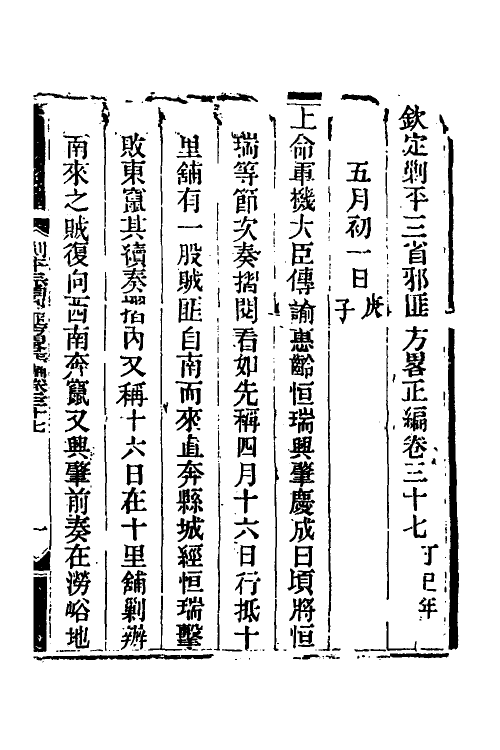 欽定剿平三省邪匪方畧正編卷三十七 丁巳年
五月初一日庚子
上命軍機大臣傳諭惠齡恒瑞興肇慶成曰頃將恒
瑞等節次奏摺閱看如先稱四月十六日行抵十
里舖有一股賊匪自南而來直奔縣城經恒瑞擊
敗東竄其續奏摺內又稱十六日在十里舖剿辦
南來之賊復向西南奔竄又興肇前奏在澇峪地